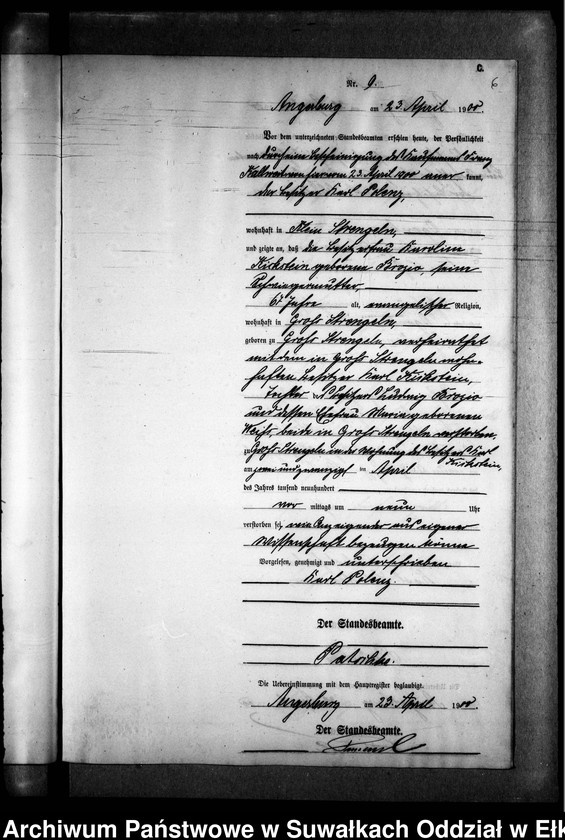 C.
6
Nr. 9.
Angerburg am 23 April 1900
Vor dem unterzeichneten Standesbeamten erschien heute, der Persönlichkeit
nach durch eine Bescheinigung des Kaufmanns Franz
Kallweit von hier vom 23. April 1900 aner kannt,
der Besitzer Karl Polenz,
wohnhaft in Klein Strengeln,
und zeigte an, daß die Besitzerfrau Karoline
Kirkstein geborene Brozio, seine
Schwiegermutter,
67 Jahre alt, evangelischer Religion,
wohnhaft in Groß Strengeln,
geboren zu Groß Strengeln, verheirathet
mit dem in Groß Strengeln wohn-
haften Besitzer Karl Kirkstein,
Tochter des Besitzers Ludwig Brozio
und dessen Ehefrau Maria geborenen
Weiß, beide in Groß Strengeln verstorben,
zu Groß Strengeln in der Wohnung des Besitzers Karl
Kirkstein,
am zwei und zwanzigsten April
des Jahres tausend neunhundert
vor mittags um neun Uhr
verstorben sei, wie Anzeigender aus eigener
Wissenschaft bezeugen könne
Vorgelesen, genehmigt und unterschrieben
Karl Polenz.
Der Standesbeamte.
Die Uebereinstimmung mit dem Hauptregister beglaubigt.
Angerburg am 23 April 1900
Der Standesbeamte.
Archiwum Państwowe w Suwałkach Oddział w Ełk